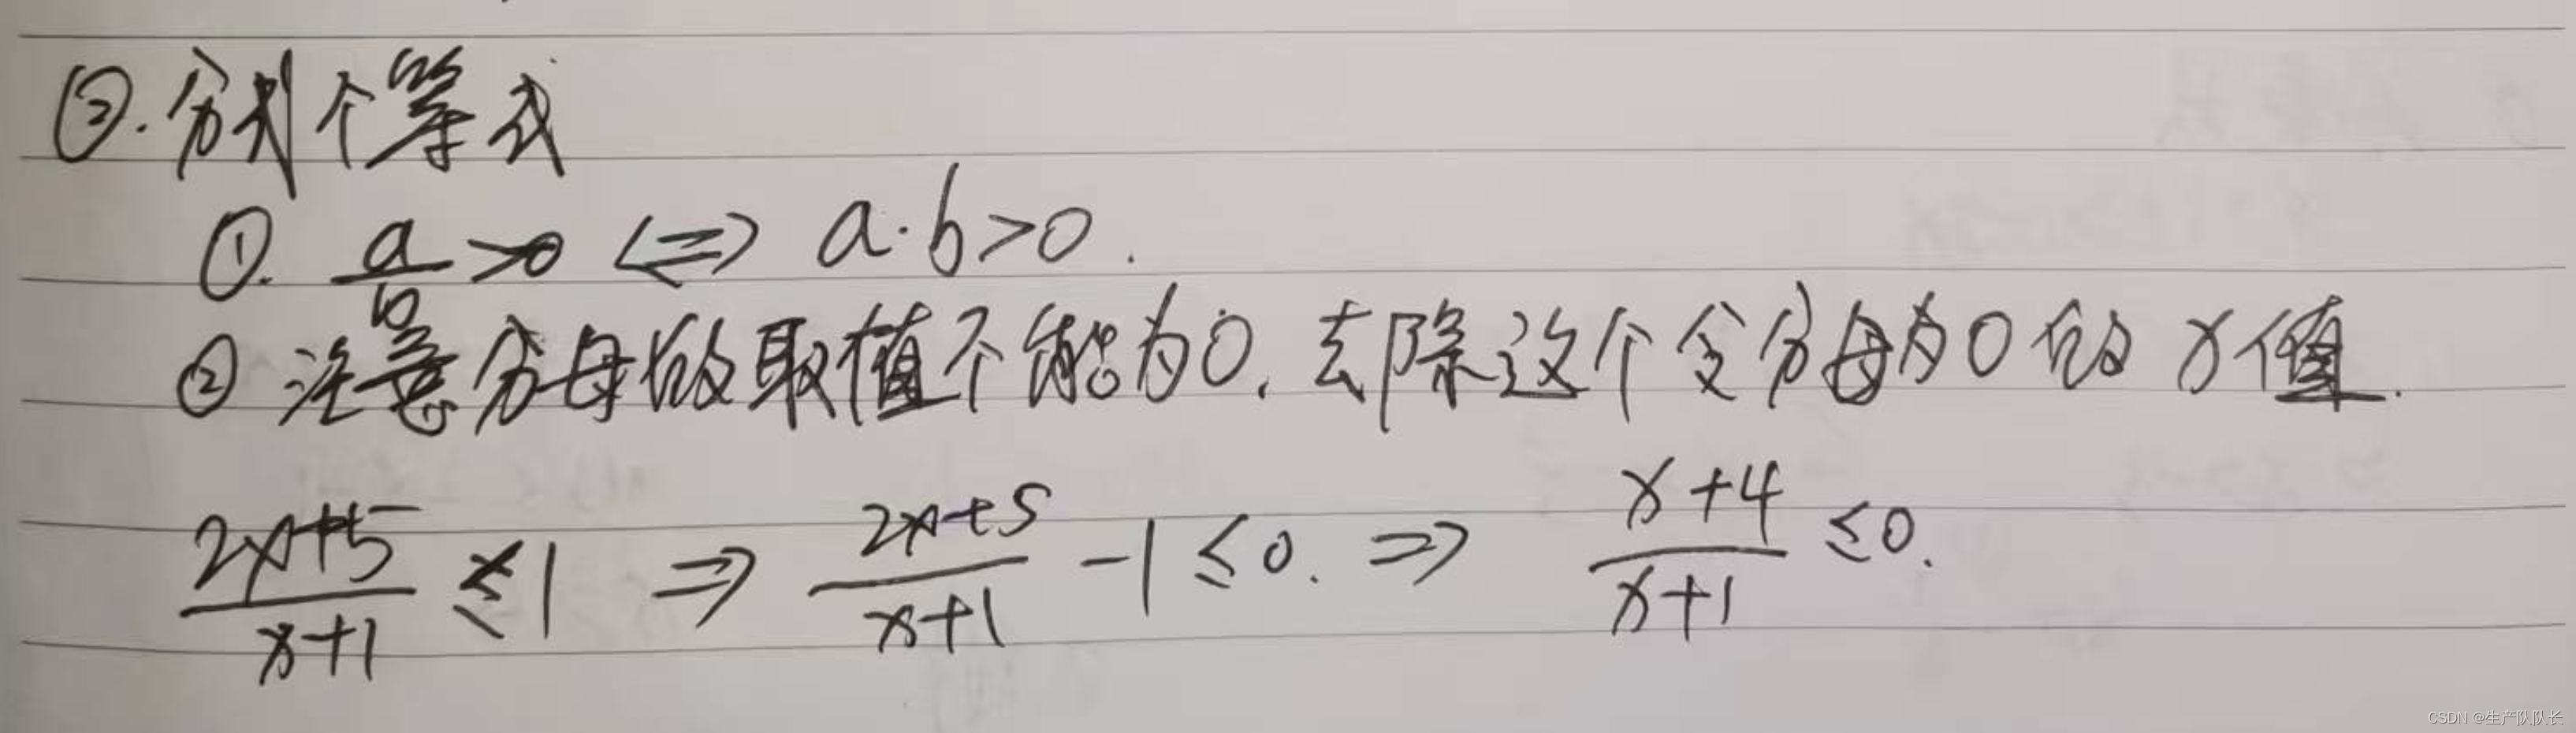 ②.分式不等式
①. a/b>0 <=> a·b>0.
② 注意分母的取值不能为0,去除这个令分母为0的x值.
(2x+5)/(x+1) ≤ 1 ⇒ (2x+5)/(x+1) -1 ≤0. ⇒ (x+4)/(x+1) ≤0.
CSDN @生产队队长